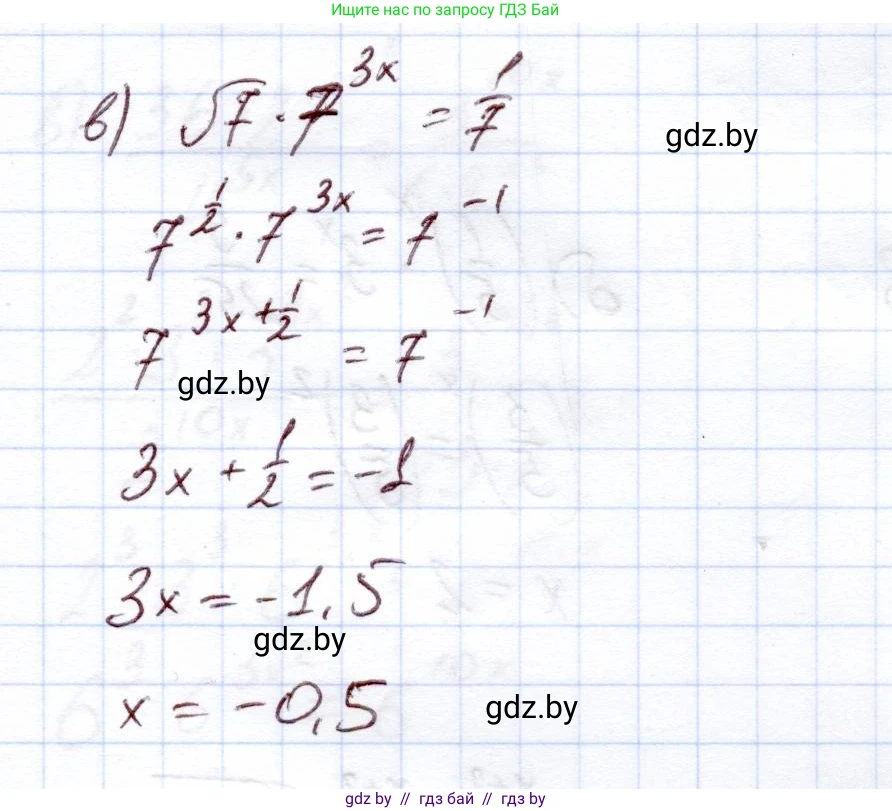 Ищите нас по запросу ГДЗ Бай
в) √7 · 7^{3x} = 1/7
gdz.by
7^{1/2} · 7^{3x} = 7^{-1}
7^{3x + 1/2} = 7^{-1}
gdz.by
3x + 1/2 = -1
3x = -1,5
gdz.by
x = -0,5
gdz.by
gdz.by // гдз бай // гдз by